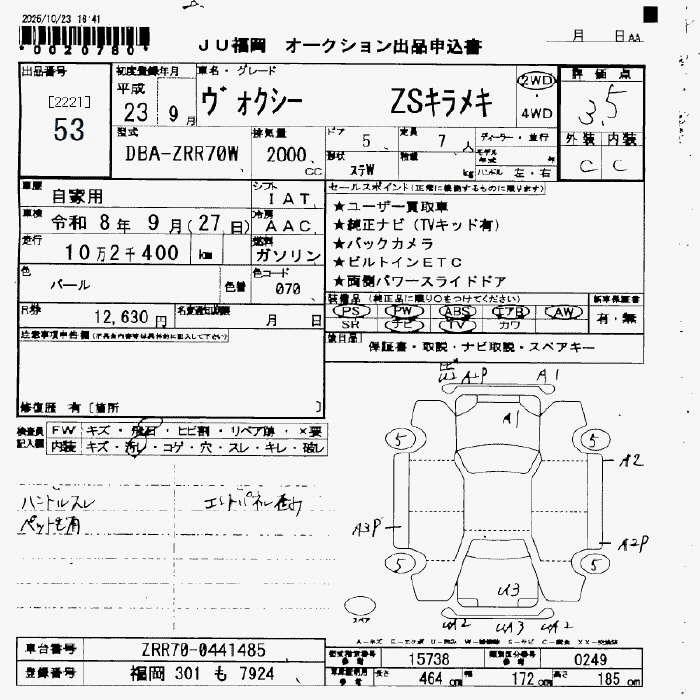 2025/10/23 16:41
*0020780*
JU福岡 オークション出品申込書
月 日 AA
出品番号
[2221]
53
初度登録年月
平成
23 9月
車名・グレード
ヴォクシー ZSキラメキ
2WD
・
4WD
評価点
3.5
外装 内装
C C
型式
DBA-ZRR70W
排気量
2000 CC
ドア
5
定員
7 人
ディーラー・並行
モデル
年式 年
形状
ステW
積量
kg
ハンドル 左・右
車歴
自家用
シフト
IAT
車検
令和 8年 9月(27日)
冷房
AAC
走行
10万2千400 km
燃料
ガソリン
色
パール
色番
色コード
070
R券
12,630 円
名変通知期限
月 日
セールスポイント(正常に機能するものに限ります)
★ユーザー買取車
★純正ナビ(TVキッド有)
★バックカメラ
★ビルトインETC
★両側パワースライドドア
装備品 (純正品に限り○をつけてください)
PS PW ABS エアB AW
SR ナビ TV カワ
新車保証書
有・無
後日品
保証書・取説・ナビ取説・スペアキー
注意事項申告欄
修復歴 有 [箇所 ]
検査員
記入欄
FW キズ・飛石・ヒビ割・リペア跡・×要
内装 キズ・汚レ・コゲ・穴・スレ・キレ・破レ
ハンドルスレ
ペット毛有
A2P A1
A1
5 5
A2
A3P
A2P
5 5
U3
UA2 UA3 UA2
スペア
車台番号
ZRR70-0441485
登録番号
福岡 301 も 7924
型式指定番号
参考
15738
類別区分番号
参考
0249
車庫証明用
参考
長さ 464 cm 幅 172 cm 高さ 185 cm